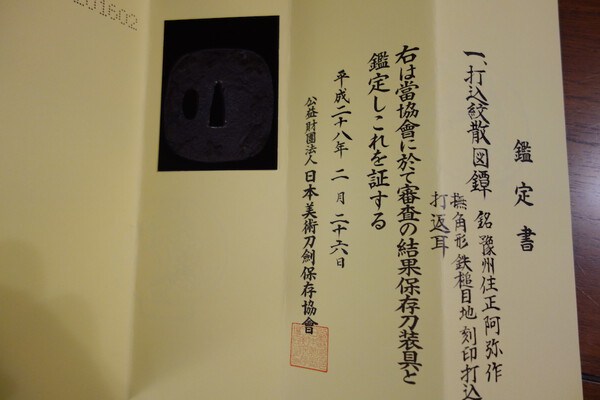 鑑定書
一、打込紋散図鐔 銘 豫州住正阿弥作
撫角形 鉄槌目地 刻印打込
打返耳
右は當協會に於て審査の結果保存刀装具と
鑑定しこれを証する
平成二十八年二月二十六日
公益財團法人日本美術刀劍保存協會
201602